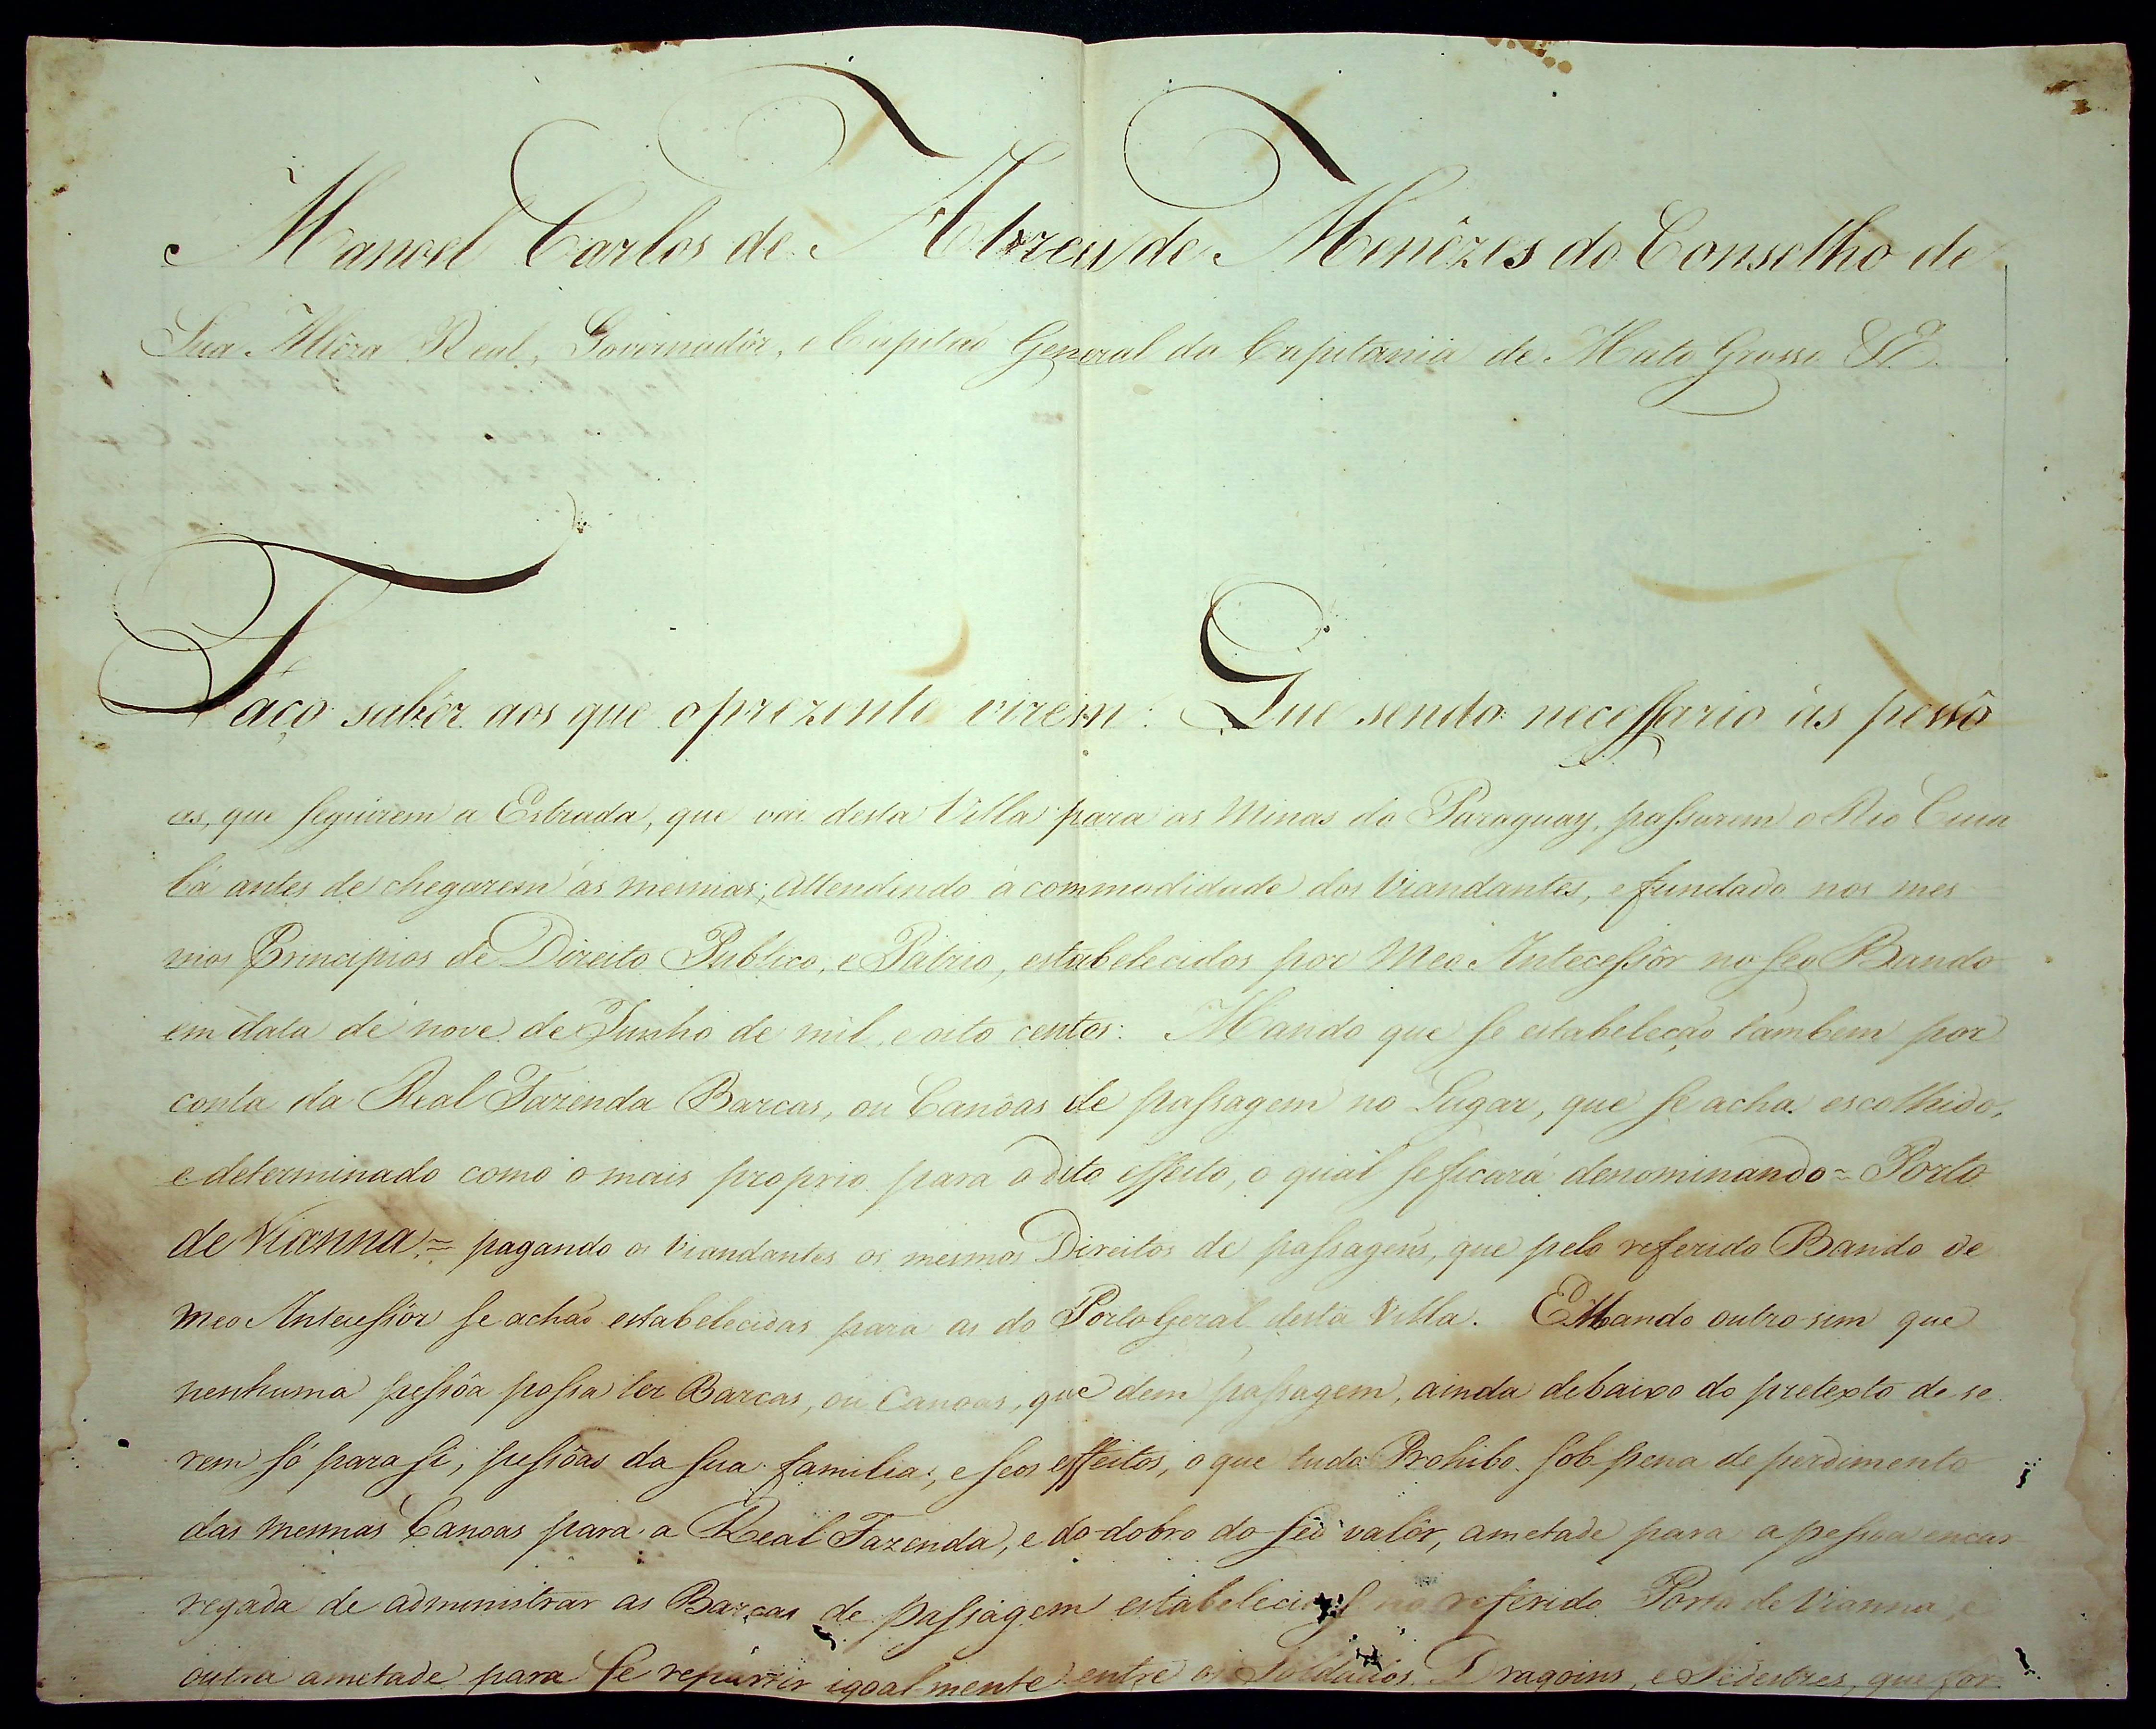 Manoel Carlos de Abreu de Menêzes do Conselho de
Sua Altêza Real, Governadôr, e Capitaõ General da Capitania de Mato Grosso &ª.
Faço sabêr aos que o prezente virem: Que sendo necessario ás pessô
as, que seguirem a Estrada, que vai desta Villa para as Minas do Paraguay, passarem o Rio Cuia
bá antes de chegarem ás mesmas; Attendendo á commodidade dos Viandantes, e fundado nos mes
mos Principios de Direito Publico, e Patrio, estabelecidos por Meo Antecessôr no seo Bando
em data de nove de Junho de mil, e oito centos: Mando que se estabeleçaõ tambem por
conta da Real Fazenda Barcas, ou Canôas de passagem no Lugar, que se acha escolhido,
e determinado como o mais proprio para o dito effeito, o qual se ficará denominando ~ Porto
de Vianna ~ pagando os Viandantes os mesmos Direitos de passagens, que pelo referido Bando de
Meo Antecessôr se achaõ estabelecidas para as do Porto Geral desta Villa. E Mando outro-sim que
nenhuma pessôa possa ter Barcas, ou Canoas, que dem passagem, ainda debaixo do pretexto de se
rem só para si, pessôas da sua familia, e seos effeitos, o que tudo Prohibo sob pena de perdimento
das mesmas Canoas para a Real Fazenda, e do dobro do seo valôr, ametade para a pessoa encar
regada de administrar as Barcas de passagem estabelecidas no referido Porto de Vianna, e
outra ametade para se repartir igoalmente entre os Soldados Dragoins, e Pedestres, que for